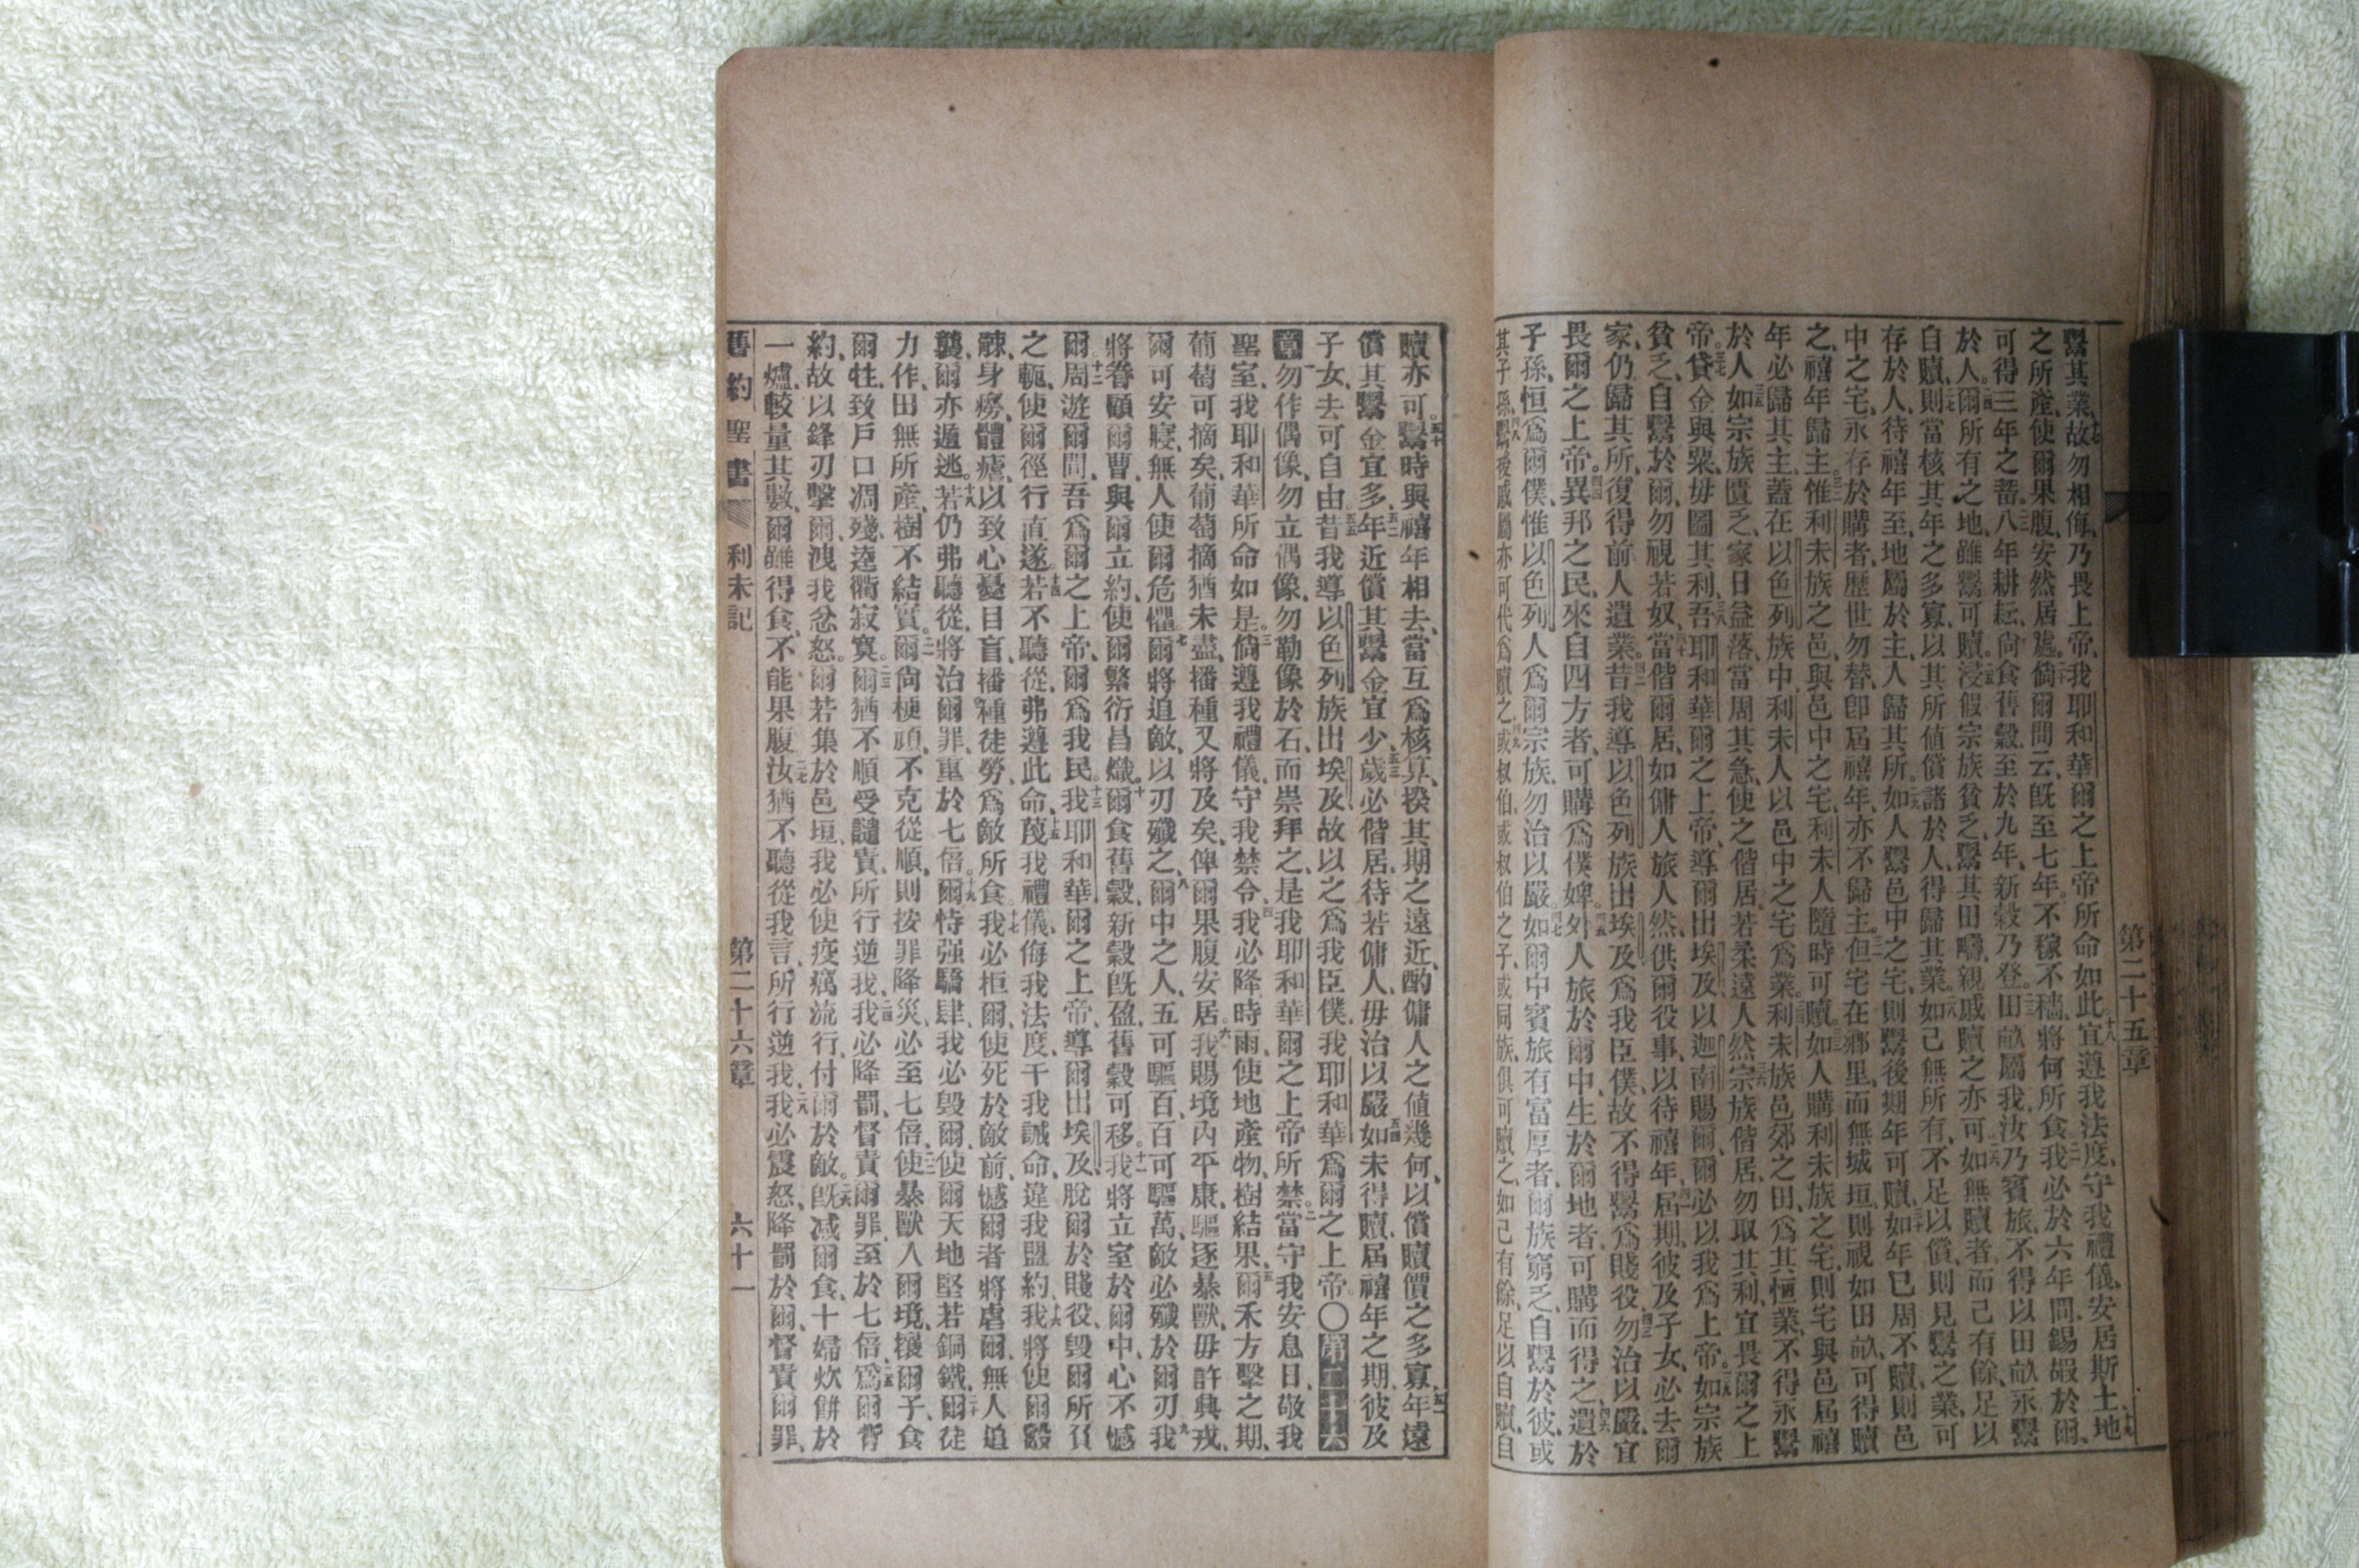 第二十五章
鬻其業、故勿相侮、乃畏上帝、我耶和華爾之上帝所命如此、宜遵我法度、守我禮儀、安居斯土、地
之所產、使爾果腹、安然居處。倘爾問云、旣至七年。不稼不穡、將何所食、我必於六年間、錫嘏於爾、
可得三年之蓄。八年耕耘、尙食舊穀、至於九年、新穀乃登。田畝屬我、汝乃賓旅、不得以田畝永鬻
於人。爾所有之地、雖鬻可贖。浸假宗族貧乏、鬻其田疇、親戚贖之亦可、如無贖者、而己有餘、足以
自贖、則當核其年之多寡、以其所値償諸於人、得歸其業、如己無所有、不足以償、則見鬻之業、可
存於人、待禧年至、地屬於主、人歸其所。如人鬻邑中之宅、則鬻後期年可贖、如年已周、不贖、則邑
中之宅、永存於購者、歷世勿替、卽屆禧年、亦不歸主、但宅在鄉里、而無城垣、則視如田畝、可得贖
之、禧年歸主、惟利未族之邑、與邑中之宅、利未人隨時可贖。如人購利未族之宅、則宅與邑屆禧
年必歸其主、蓋在以色列族中、利未人以邑中之宅爲業。利未族邑郊之田、爲其恒業、不得永鬻
於人。如宗族匱乏、家日益落、當周其急、使之偕居、若柔遠人然、宗族偕居、勿取其利、宜畏爾之上
帝。貸金與粟、毋圖其利、吾耶和華爾之上帝、導爾出埃及、以迦南賜爾、爾必以我爲上帝。如宗族
貧乏、自鬻於爾、勿視若奴、當偕爾居、如傭人旅人然、供爾役事、以待禧年、屆期、彼及子女、必去爾
家、仍歸其所、復得前人遺業、昔我導以色列族出埃及、爲我臣僕、故不得鬻爲賤役、勿治以嚴、宜
畏爾之上帝。異邦之民、來自四方者、可購爲僕婢。外人旅於爾中、生於爾地者、可購而得之、遺於
子孫、恒爲爾僕、惟以色列人爲爾宗族、勿治以嚴。如爾中賓旅有富厚者、爾族窮乏、自鬻於彼、或
其子孫、鬻後戚屬亦可代爲贖之、或叔伯、或叔伯之子、或同族、俱可贖之、如己有餘、足以自贖、自
贖亦可。鬻時與禧年相去、當互爲核算、揆其期之遠近、酌傭人之値幾何、以償贖價之多寡、年遠
償其鬻金宜多、年近償其鬻金宜少、歲必偕居、待若傭人、毋治以嚴、如未得贖、屆禧年之期、彼及
子女、去可自由。昔我導以色列族出埃及、故以之爲我臣僕、我耶和華爲爾之上帝。〇第二十六
章勿作偶像、勿立偶像、勿勒像於石、而崇拜之、是我耶和華爾之上帝所禁。當守我安息日、敬我
聖室、我耶和華所命如是。倘遵我禮儀、守我禁令、我必降時雨、使地產物、樹結果、爾禾方擊之期、
葡萄可摘矣、葡萄摘猶未盡、播種又將及矣、俾爾果腹安居。我賜境內平康、驅逐暴獸、毋許興戎、
爾可安寢、無人使爾危懼。爾將追敵、以刃殲之、爾中之人、五可驅百、百可驅萬、敵必殲於爾刃、我
將眷顧爾曹、與爾立約、使爾繁衍昌熾。爾食舊穀、新穀旣盈、舊穀可移。我將立室於爾中、心不憾
爾。周遊爾間、吾爲爾之上帝、爾爲我民。我耶和華爾之上帝、導爾出埃及、脫爾於賤役、毀爾所負
之軛、使爾徑行直遂。若不聽從、弗遵此命、蔑我禮儀、侮我法度、干我誡命、違我盟約、我將使爾觳
觫、身癆、體瘧、以致心憂目盲、播種徒勞、爲敵所食、我必拒爾、使死於敵前、憾爾者將虐爾、無人追
襲、爾亦遁逃。若仍弗聽從、將治爾罪、重於七倍。爾恃强驕肆、我必毀爾、使爾天地堅若銅鐵、爾徒
力作、田無所產、樹不結實。爾尙梗頑、不克從順、則按罪降災、必至七倍、使暴獸入爾境、攘爾子、食
爾牲、致戶口凋殘、逵衢寂寞。爾猶不順受譴責、所行逆我、我必降罰、督責爾罪、至於七倍、爲爾背
約、故以鋒刃擊爾、洩我忿怒。爾若集於邑垣、我必使疫癘流行、付爾於敵。旣减爾食、十婦炊餅於
一爐、較量其數、爾雖得食、不能果腹、汝猶不聽從我言、所行逆我、我必震怒、降罰於爾、督責爾罪、
舊約聖書 利未記 第二十六章 六十一